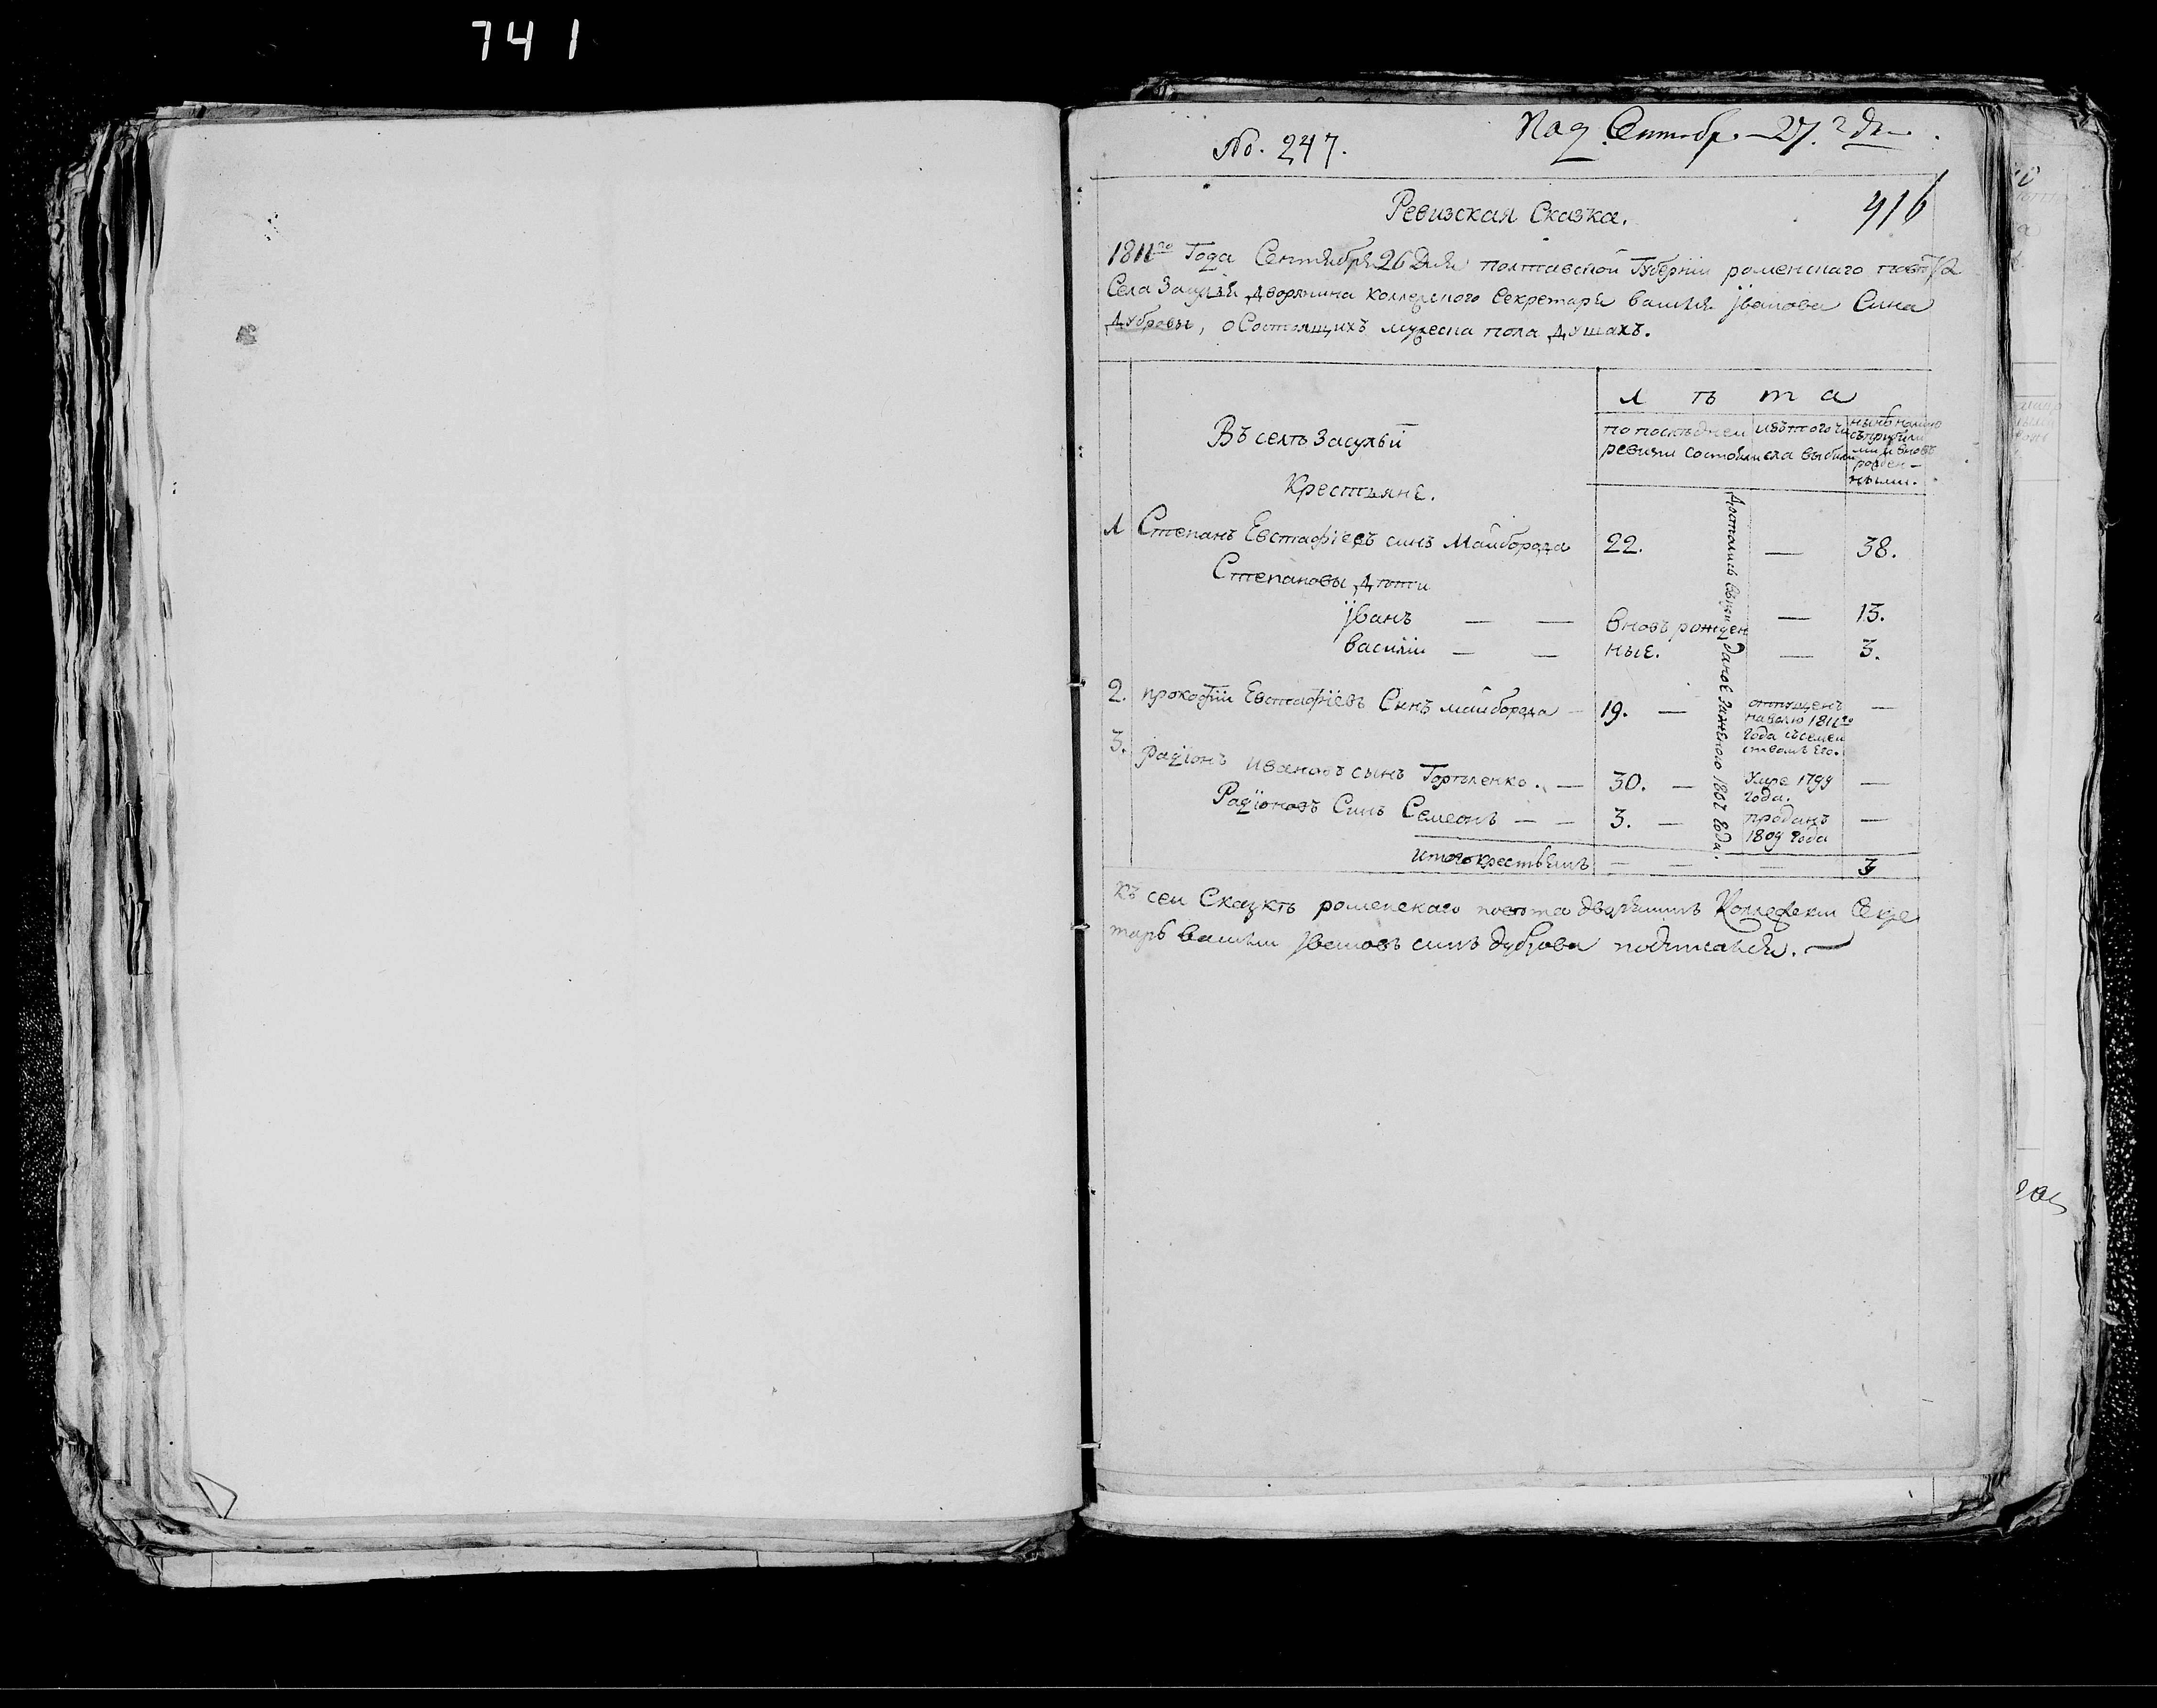 741
No. 247.
Под. Сентябр. 27. го дня
416
Ревизская Сказка.
1811го Года Сентября 26 Дня полтавской Губернии роменскаго повѣта
Села Засулья Дворянина Коллежского Секретаря василия Jванова Сина
Дубровы, о Состоящихъ мужеска пола Душахъ.
Л ѣ т а
по послѣдней ревизии состояли
изъ того числа выбили
нынѣ налицо съ прибилими и вновь рожденными.
Въ селѣ Засульи
Крестьяне.
1 Степанъ Евстафіевъ синъ Майборода 22. — 38.
Степановы Дѣти
Jванъ — — вновь рожден — 13.
василіи — — ные. — 3.
2. прокофіи Евстафіевъ Синъ майборода — 19. — отпущенъ на волю 1811го года съ семейством его. —
3. радіонъ ивановъ сынъ Гортоленко. — 30. — Умре 1799 года. —
Радіоновъ Синъ Семеонъ — — 3. — проданъ 1809 года —
1807 Года.
итого крестьянъ — — — 3
Къ сей Сказкѣ роменскаго повѣта дворянинъ Коллежски Секре
тарь василии Jвановъ синъ дуброва подписался. —